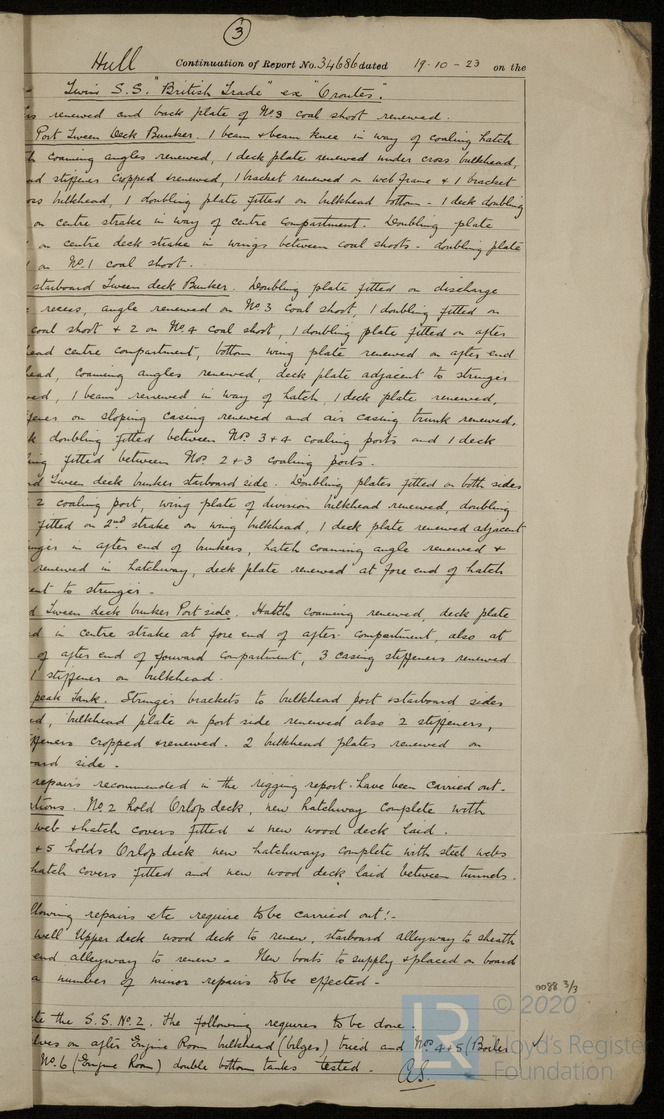 3
Hull Continuation of Report No. 34686 dated 19-10-23 on the
Twin S.S. "British Trade" ex "Orontes".
renewed and back plate of No.3 coal shoot renewed.
Port Tween Deck Bunker. 1 beam & beam knee in way of coaling hatch
coaming angles renewed, 1 deck plate renewed under cross bulkhead,
stiffener cropped & renewed, 1 bracket renewed on web frame & 1 bracket
bulkhead, 1 doubling plate fitted on bulkhead bottom - 1 deck doubling
on centre strake in way of centre compartment. Doubling plate
on centre deck strake in wings between coal shoots - doubling plate
on No.1 coal shoot.
starboard Tween deck Bunker. Doubling plate fitted on discharge
recess, angle renewed on No.3 coal shoot, 1 doubling fitted on
coal shoot & 2 on No.4 coal shoot, 1 doubling plate fitted on after
head centre compartment, bottom wing plate renewed on after end
head, coaming angles renewed, deck plate adjacent to stringer
ed, 1 beam renewed in way of hatch, 1 deck plate renewed,
feners on sloping casing renewed and air casing trunk renewed,
k doubling fitted between Nos. 3+4 coaling ports and 1 deck
ing fitted between Nos. 2+3 coaling ports.
d Tween deck bunker starboard side. Doubling plates fitted on both sides
2 coaling port, wing plate of division bulkhead renewed, doubling
fitted on 2nd strake on wing bulkhead, 1 deck plate renewed adjacent
inger in after end of bunkers, hatch coaming angle renewed &
renewed in hatchway, deck plate renewed at fore end of hatch
ent to stringer -
d Tween deck bunker Port side. Hatch coaming renewed, deck plate
d in centre strake at fore end of after compartment, also at
of after end of forward compartment, 3 casing stiffeners renewed
1 stiffener on bulkhead.
peak Tank. Stringer brackets to bulkhead port & starboard sides
ed, bulkhead plate on port side renewed also 2 stiffeners,
ffeners cropped & renewed. 2 bulkhead plates renewed on
oard side -
repairs recommended in the rigging report have been carried out -
ations. No.2 hold Orlop deck, new hatchway complete with
web & hatch covers fitted & new wood deck laid.
+5 holds Orlop deck new hatchways complete with steel webs
hatch covers fitted and new wood deck laid between tunnels.
llowing repairs etc require to be carried out:-
well Upper deck wood deck to renew, starboard alleyway to sheath
end alleyway to renew - New boats to supply & placed on board
a number of minor repairs to be effected -
te the S.S. No. 2. The following requires to be done.
lves on after Engine Room bulkhead (bilges) tried and Nos. 4+5 (Boiler
No.6 (Engine Room) double bottom tanks tested -
0088 3/3
LR
© 2020
Lloyd's Register
Foundation